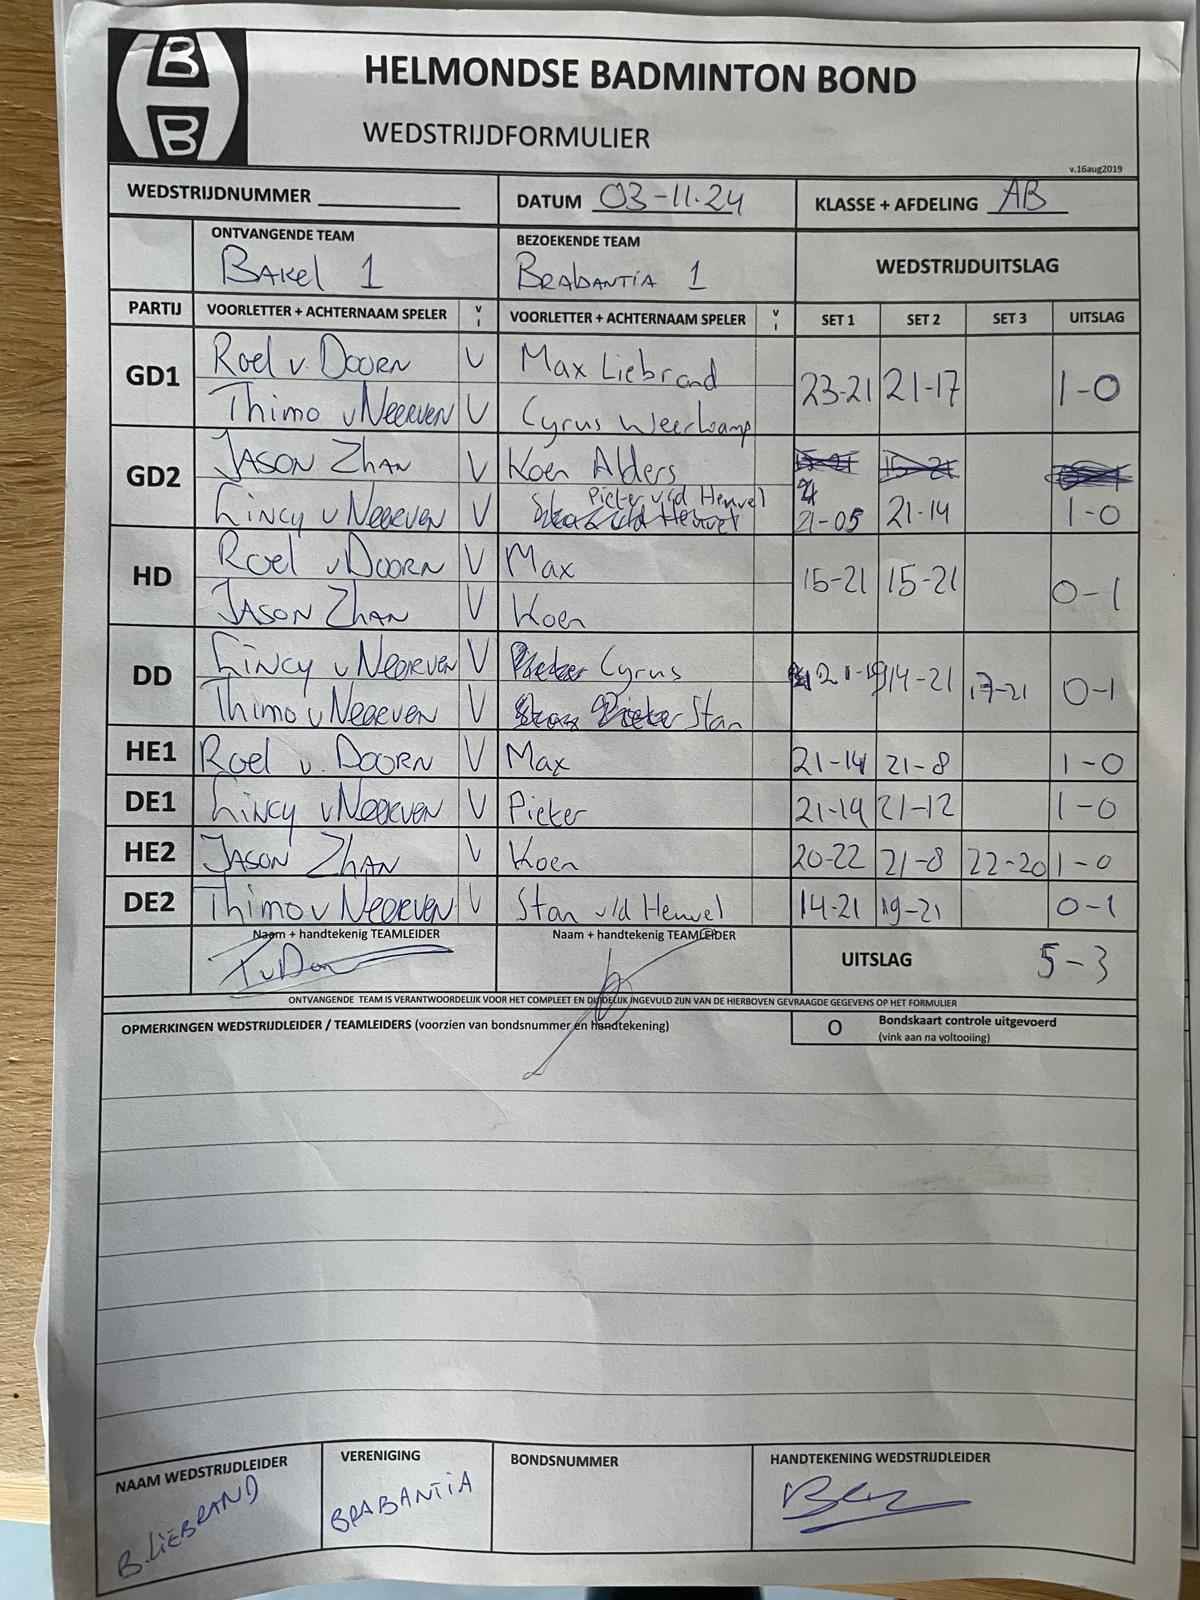 HELMONDSE BADMINTON BOND
WEDSTRIJDFORMULIER
v.16aug2019
WEDSTRIJDNUMMER DATUM 03-11-24 KLASSE + AFDELING AB
ONTVANGENDE TEAM BEZOEKENDE TEAM WEDSTRIJDUITSLAG
BAKEL 1 BRABANTIA 1
PARTIJ VOORLETTER + ACHTERNAAM SPELER V I VOORLETTER + ACHTERNAAM SPELER V I SET 1 SET 2 SET 3 UITSLAG
GD1 Roel v. Doorn V Max Liebrand 23-21 21-17 1-0
Thimo v Neerven V Cyrus Weerkamp
GD2 Jason Zhan V Koen Alders
Lincy v Neerven V Pieter v/d Heuvel 21-05 21-14 1-0
HD Roel v Doorn V Max 15-21 15-21 0-1
Jason Zhan V Koen
DD Lincy v Neerven V Cyrus 21-19 14-21 17-21 0-1
Thimo v Neerven V Stan
HE1 Roel v. Doorn V Max 21-14 21-8 1-0
DE1 Lincy v Neerven V Pieter 21-19 21-12 1-0
HE2 Jason Zhan V Koen 20-22 21-8 22-20 1-0
DE2 Thimo v Neerven V Stan v/d Heuvel 14-21 19-21 0-1
Naam + handtekenig TEAMLEIDER Naam + handtekenig TEAMLEIDER UITSLAG 5-3
ONTVANGENDE TEAM IS VERANTWOORDELIJK VOOR HET COMPLEET EN DUIDELIJK INGEVULD ZIJN VAN DE HIERBOVEN GEVRAAGDE GEGEVENS OP HET FORMULIER
OPMERKINGEN WEDSTRIJDLEIDER / TEAMLEIDERS (voorzien van bondsnummer en handtekening) O Bondskaart controle uitgevoerd
(vink aan na voltooiing)
NAAM WEDSTRIJDLEIDER VERENIGING BONDSNUMMER HANDTEKENING WEDSTRIJDLEIDER
B. LIEBRAND BRABANTIA